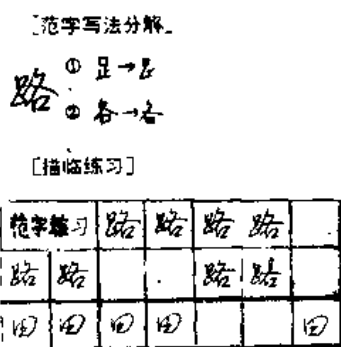 [范字写法分解]
路 ① 足→𧾷
② 各→各
[描临练习]
范字练习 路 路 路 路
路 路 路 路
回 回 回 回 回